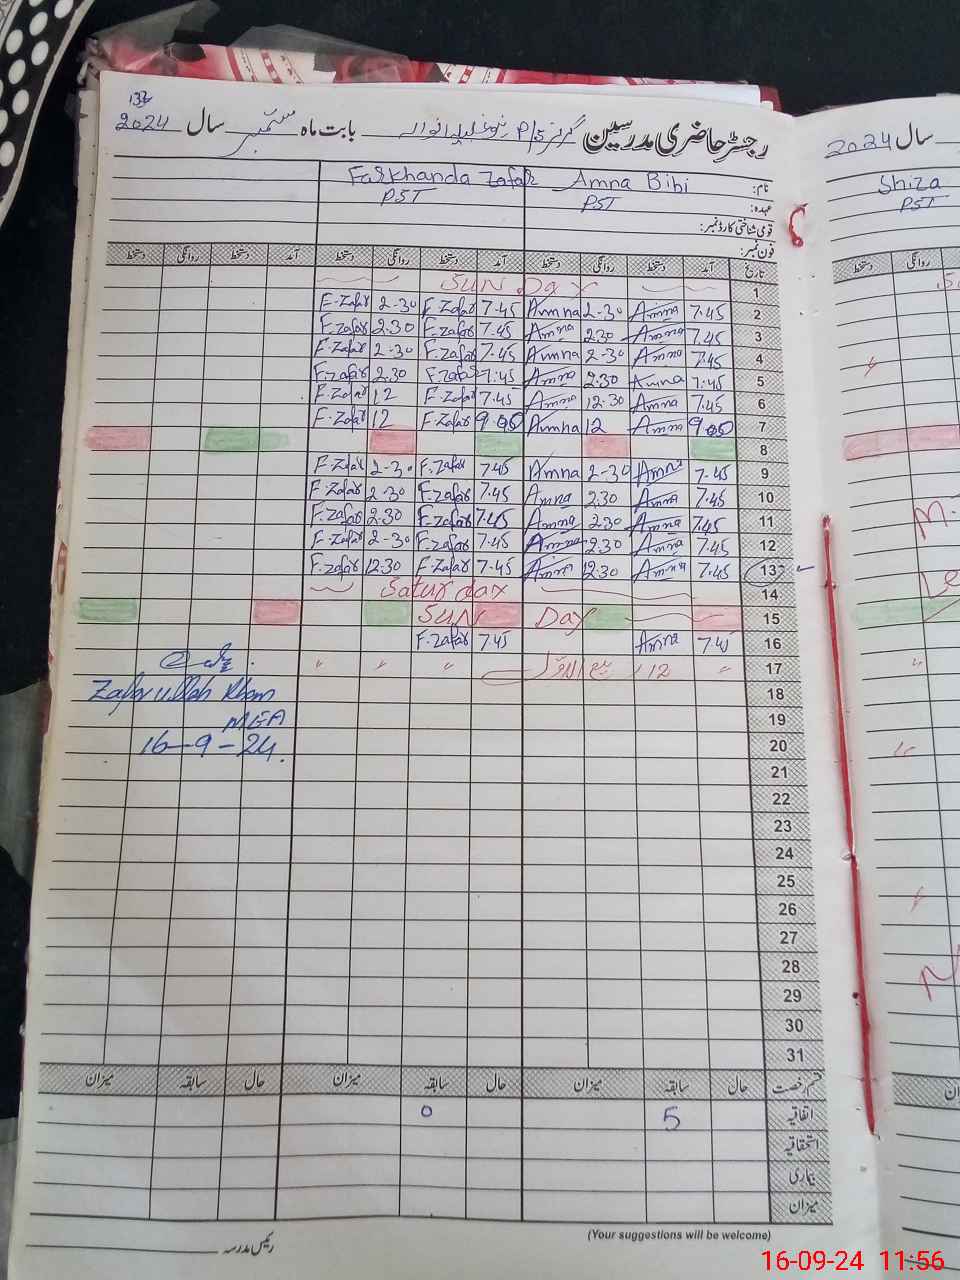 133
رجسٹر حاضری مدرسین گرلز P/S بابت ماہ ستمبر سال 2024
نام: Amna Bibi Farkhanda Zafar
عہدہ: PST PST
قومی شناختی کارڈ نمبر:
فون نمبر:
تاریخ آمد دستخط روانگی دستخط آمد دستخط روانگی دستخط آمد دستخط روانگی دستخط
1 SUN Day
2 7.45 Amna 2-30 Amna 7.45 F.Zafar 2-30 F.Zafar
3 7.45 Amna 2.30 Amna 7.45 F.Zafar 2.30 F.Zafar
4 7.45 Amna 2-30 Amna 7.45 F.Zafar 2-30 F.Zafar
5 7.45 Amna 2.30 Amna 7.45 F.Zafar 2.30 F.Zafar
6 7.45 Amna 12.30 Amna 7.45 F.Zafar 12 F.Zafar
7 9 Amna 12 Amna 9 F.Zafar 12 F.Zafar
8
9 7.45 Amna 2-30 Amna 7.45 F.Zafar 2-30 F.Zafar
10 7.45 Amna 2.30 Amna 7.45 F.Zafar 2.30 F.Zafar
11 7.45 Amna 2.30 Amna 7.45 F.Zafar 2.30 F.Zafar
12 7.45 Amna 2.30 Amna 7.45 F.Zafar 2-30 F.Zafar
13 7.45 Amna 12.30 Amna 7.45 F.Zafar 12.30 F.Zafar
14 Saturday
15 SUN DAY
16 7.45 Amna 7.45 F.Zafar
17 " 12 ربیع الاوّل " " "
18
19
20
21
22
23
24
25
26
27
28
29
30
31
Zafar ullah Khan
MEA
16-9-24.
قسم رخصت حال سابقہ میزان حال سابقہ میزان حال سابقہ میزان
اتفاقیہ 5 0
استحقاقیہ
بیماری
میزان
رئیس مدرسہ
(Your suggestions will be welcome)
سال 2024
Shiza
PST
دستخط روانگی
16-09-24 11:56